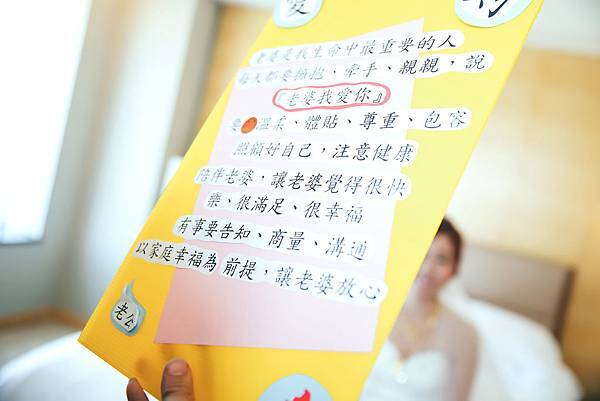 愛
老婆是我生命中最重要的人
每天都要擁抱、牽手、親親，說
『老婆我愛你』
要溫柔、體貼、尊重、包容
照顧好自己，注意健康
陪伴老婆，讓老婆覺得很快
樂、很滿足、很幸福
有事要告知、商量、溝通
以家庭幸福為前提，讓老婆放心
老公